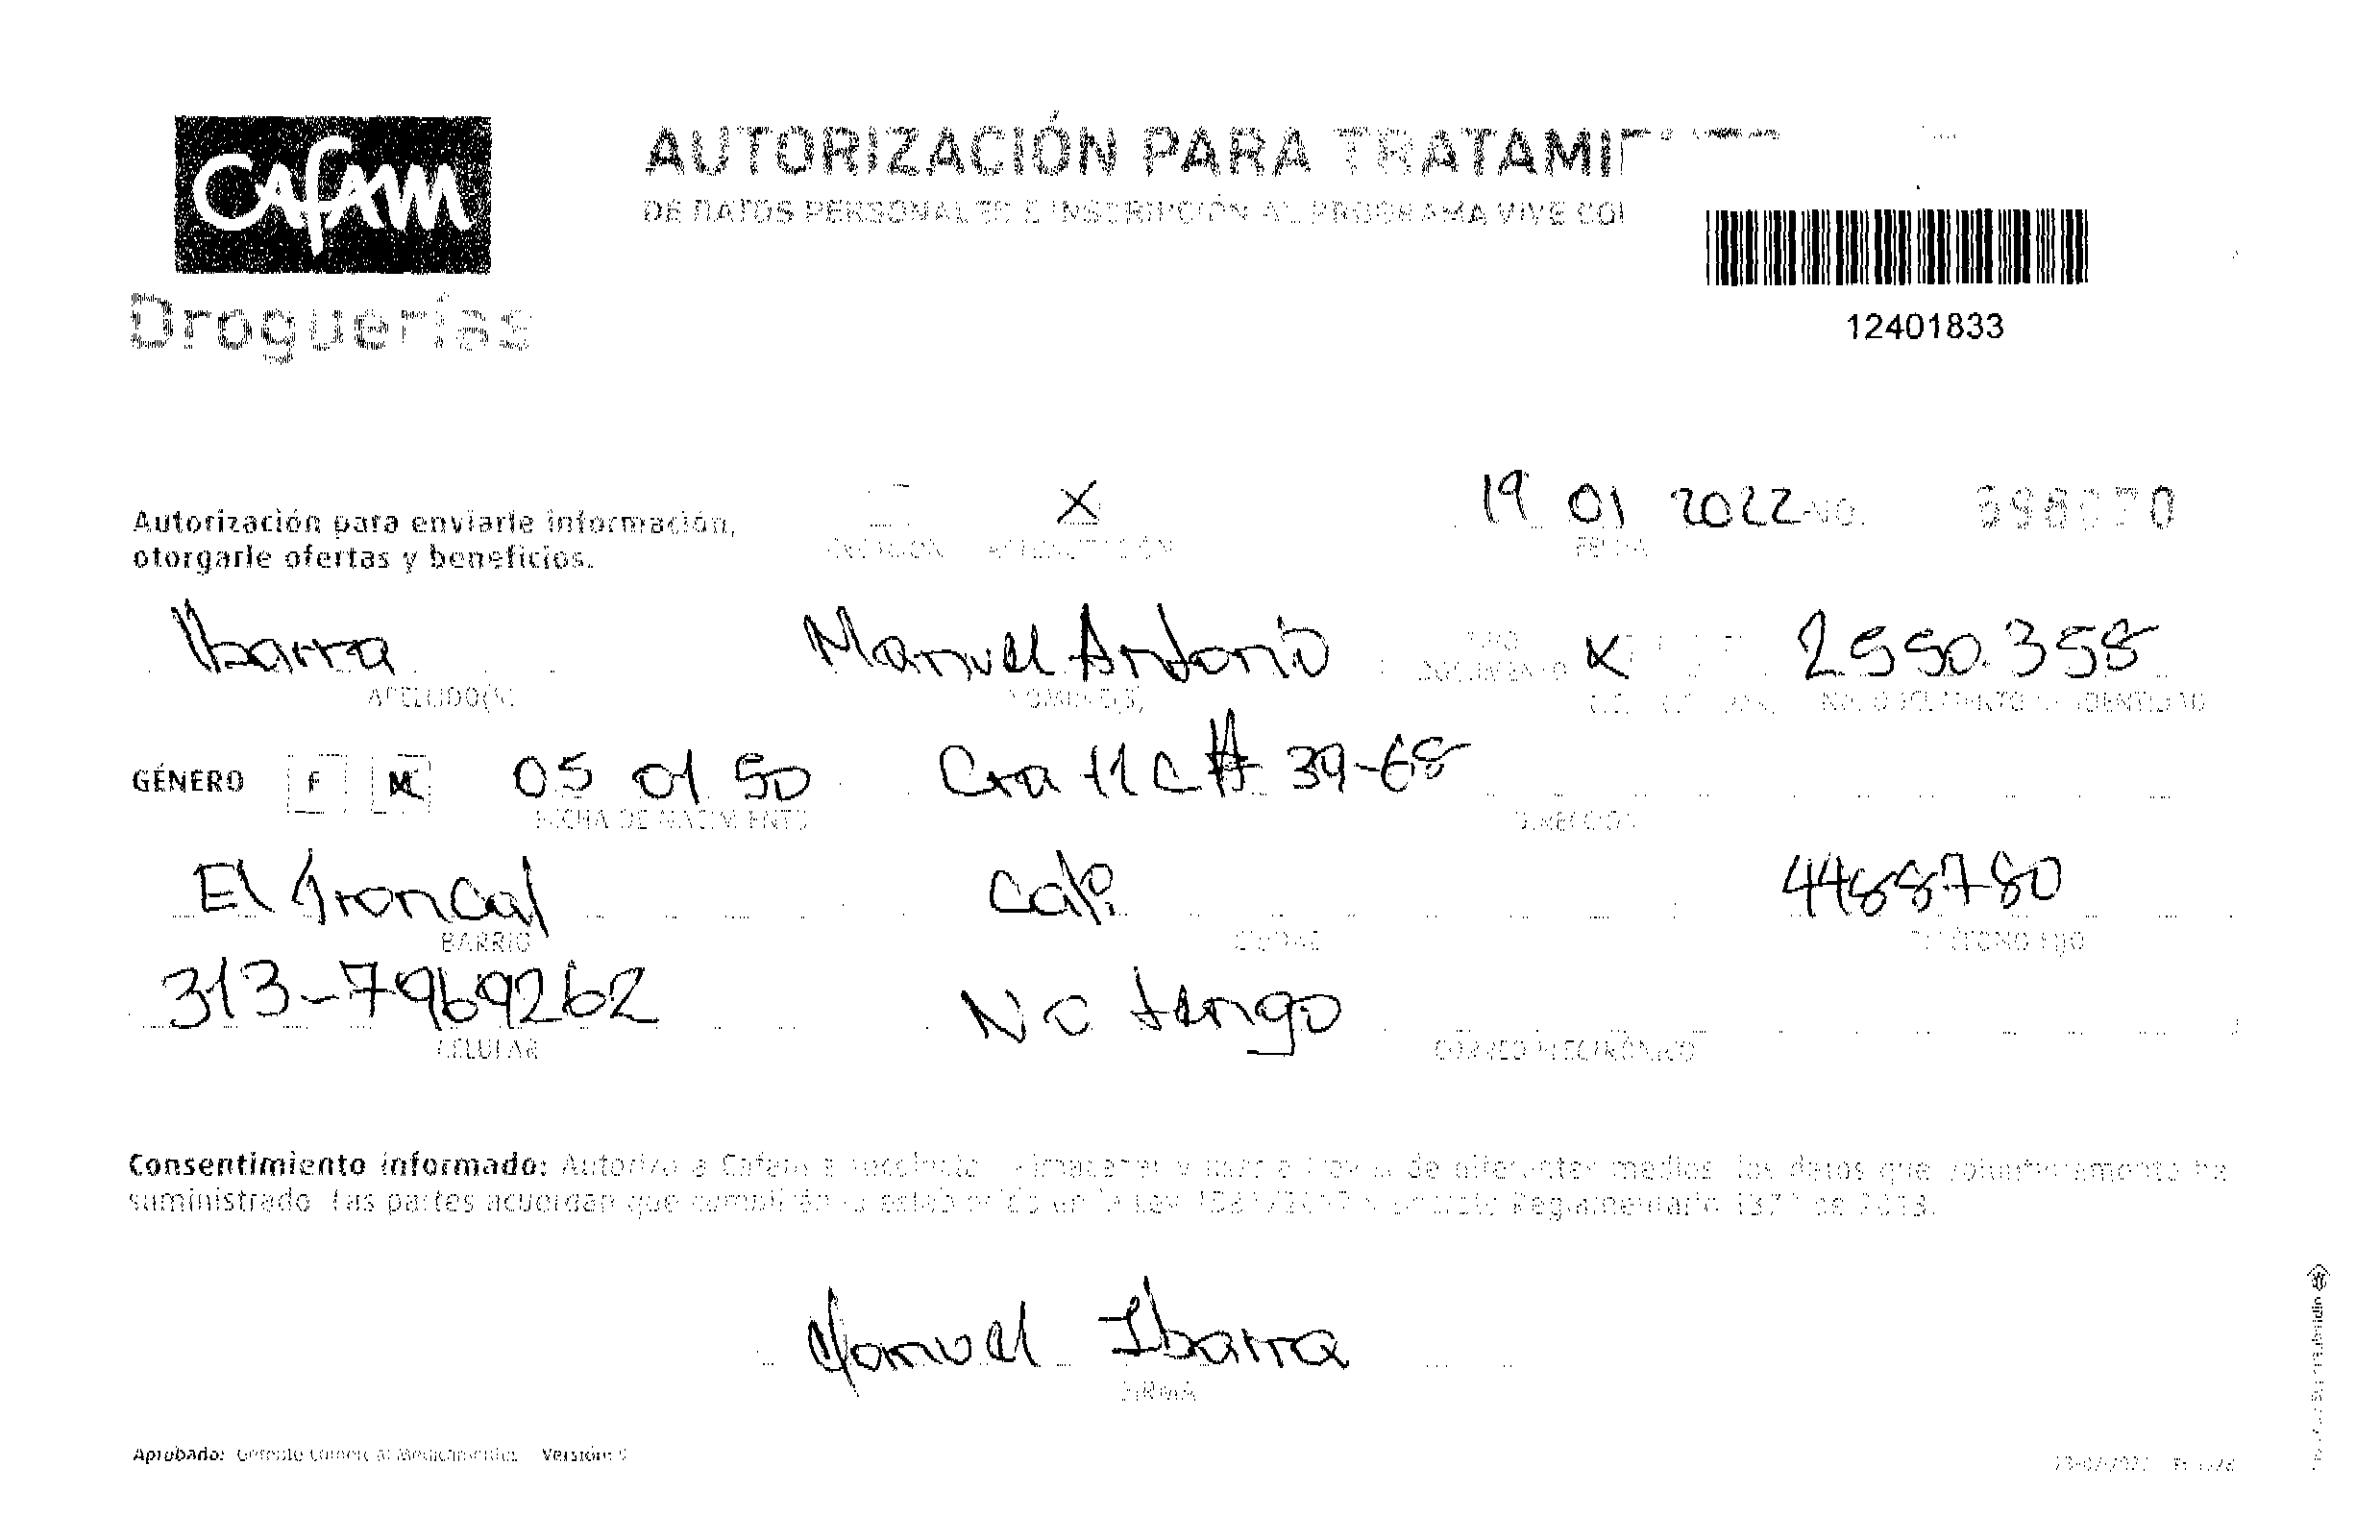 Cafam
Droguerías
AUTORIZACIÓN PARA TRATAMI
DE DATOS PERSONALES E INSCRIPCIÓN AL PROGRAMA VIVE CO
12401833
Autorización para enviarle información,
otorgarle ofertas y beneficios.
X
ACTUALIZACIÓN
19 01 2022 NO.
FECHA
Ibarra Manuel Antonio X 2550.358
APELLIDO(S) NOMBRE(S) TIPO DOCUMENTO NO. DOCUMENTO DE IDENTIDAD
GÉNERO F M 05 01 50 Cra 11C # 39-68
FECHA DE NACIMIENTO DIRECCIÓN
El Troncal Cali 4488780
BARRIO CIUDAD TELÉFONO FIJO
313-7969262 No tengo
CELULAR CORREO ELECTRÓNICO
Consentimiento informado: Autorizo a Cafam a recolectar, almacenar y usar a través de diferentes medios, los datos que voluntariamente he
suministrado. Las partes acuerdan que cumplirán lo establecido en la Ley 1581/2012 y Decreto Reglamentario 1377 de 2013.
Manuel Ibarra
FIRMA
Aprobado: Gerente Comercial Medicamentos Versión: